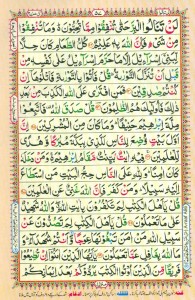 لَنْ تَنَالُوا الْبِرَّ حَتّٰى تُنْفِقُوْا مِمَّا تُحِبُّوْنَ وَمَا تُنْفِقُوْا
مِنْ شَيْءٍ فَاِنَّ اللّٰهَ بِهٖ عَلِيْمٌ كُلُّ الطَّعَامِ كَانَ حِلًّا
لِّبَنِيْٓ اِسْرَآءِيْلَ اِلَّا مَا حَرَّمَ اِسْرَآءِيْلُ عَلٰى نَفْسِهٖ مِنْ
قَبْلِ اَنْ تُنَزَّلَ التَّوْرٰىةُ قُلْ فَاْتُوْا بِالتَّوْرٰىةِ فَاتْلُوْهَآ اِنْ
كُنْتُمْ صٰدِقِيْنَ فَمَنِ افْتَرٰى عَلَى اللّٰهِ الْكَذِبَ مِنْ بَعْدِ
ذٰلِكَ فَاُولٰٓئِكَ هُمُ الظّٰلِمُوْنَ قُلْ صَدَقَ اللّٰهُ فَاتَّبِعُوْا
مِلَّةَ اِبْرٰهِيْمَ حَنِيْفًا وَمَا كَانَ مِنَ الْمُشْرِكِيْنَ اِنَّ
اَوَّلَ بَيْتٍ وُّضِعَ لِلنَّاسِ لَلَّذِيْ بِبَكَّةَ مُبٰرَكًا وَّهُدًى
لِّلْعٰلَمِيْنَ فِيْهِ اٰيٰتٌ بَيِّنٰتٌ مَّقَامُ اِبْرٰهِيْمَ وَمَنْ دَخَلَهٗ
كَانَ اٰمِنًا وَلِلّٰهِ عَلَى النَّاسِ حِجُّ الْبَيْتِ مَنِ اسْتَطَاعَ
اِلَيْهِ سَبِيْلًا وَمَنْ كَفَرَ فَاِنَّ اللّٰهَ غَنِيٌّ عَنِ الْعٰلَمِيْنَ
قُلْ يٰٓاَهْلَ الْكِتٰبِ لِمَ تَكْفُرُوْنَ بِاٰيٰتِ اللّٰهِ وَاللّٰهُ شَهِيْدٌ
عَلٰى مَا تَعْمَلُوْنَ قُلْ يٰٓاَهْلَ الْكِتٰبِ لِمَ تَصُدُّوْنَ عَنْ
سَبِيْلِ اللّٰهِ مَنْ اٰمَنَ تَبْغُوْنَهَا عِوَجًا وَّاَنْتُمْ شُهَدَآءُ وَمَا
اللّٰهُ بِغَافِلٍ عَمَّا تَعْمَلُوْنَ يٰٓاَيُّهَا الَّذِيْنَ اٰمَنُوْٓا اِنْ تُطِيْعُوْا
فَرِيْقًا مِّنَ الَّذِيْنَ اُوْتُوا الْكِتٰبَ يَرُدُّوْكُمْ بَعْدَ اِيْمَانِكُمْ